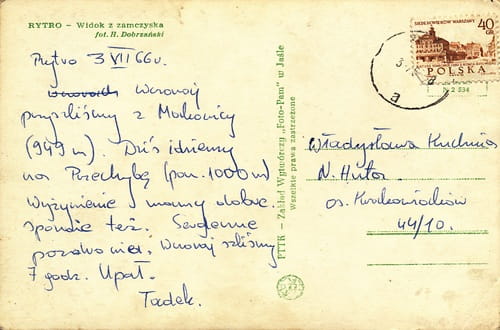 RYTRO – Widok z zamczyska
fot. H. Dobrzański
Rytro 3 VII 66r.
wczoraj Wczoraj
przyszliśmy z Makowicy
(949 m). Dziś idziemy
na Przechybę (pon. 1000 m)
Wyżywienie mamy dobre,
spanie też. Serdeczne
pozdrowienia. Wczoraj szliśmy
7 godz. Upał.
Tadek.
PTTK – Zakład Wytwórczy „Foto-Pam" w Jaśle
Wszelkie prawa zastrzeżone
SIEDEMWIEKÓW WARSZAWY
40 GR
POLSKA
N 2 534
Władysława Kuchnia
N. Huta
os. Krakowiaków
44/10.